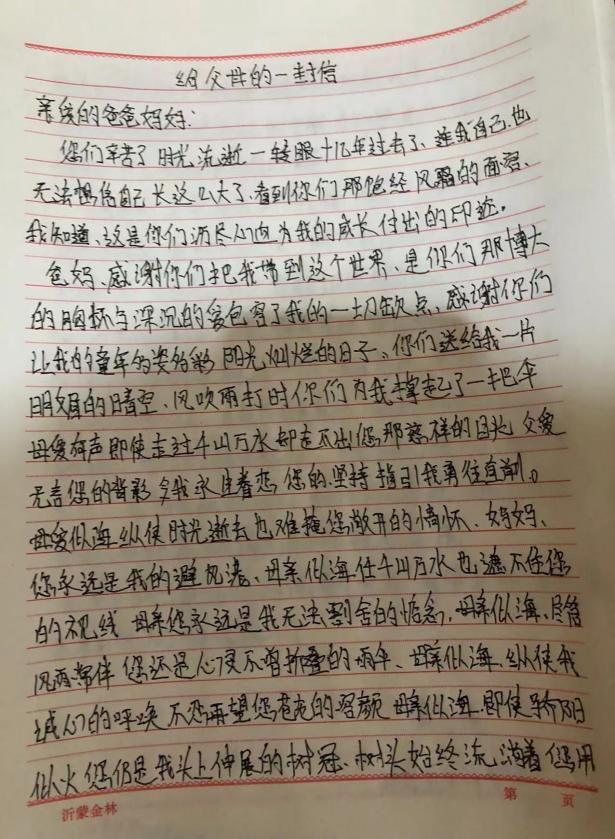 给父母的一封信
亲爱的爸爸妈妈:
您们辛苦了 时光流逝一转眼十几年过去了、连我自己也
无法想信自己长这么大了、看到你们那饱经风霜的面容、
我知道、这是你们沥尽心血为我的成长付出的印迹。
爸妈、感谢你们把我带到这个世界、是你们那博大
的胸怀与深沉的爱包容了我的一切缺点、感谢你们
让我的童年多姿多彩 阳光灿烂的日子、你们送给我一片
明媚的晴空、风吹雨打时你们为我撑起了一把伞
母爱有声即使走过千山万水却走不出您那慈祥的目光 父爱
无言您的背影令我永生眷恋 您的坚持指引我勇往直前。
母爱似海纵使时光逝去也难掩您敞开的情怀、妈妈、
您永远是我的避风港、母亲似海任千山万水也遮不住您
的视线 母亲您永远是我无法割舍的惦念、母亲似海、尽管
风雨常伴 您还是心灵不曾折叠的雨伞、母亲似海、纵使我
的呼唤 不忍再望您苍老的容颜 母亲似海、即使骄阳
似火 您仍是我头上伸展的树冠、树头始终流淌着您用
沂蒙金林
第 页